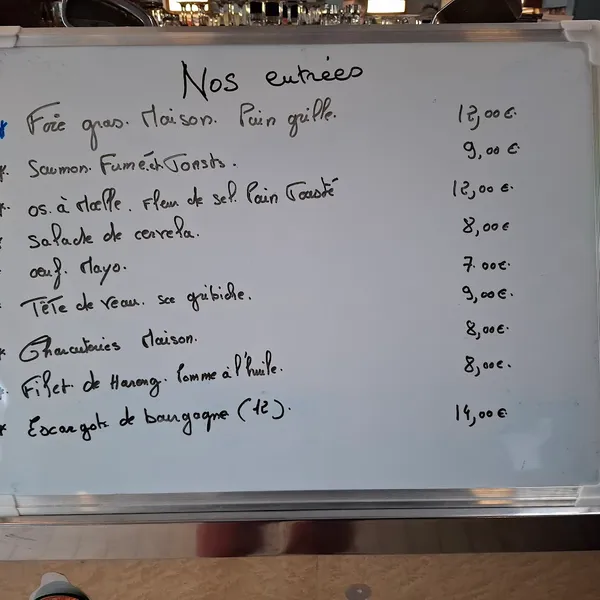 Nos entrées
* Foie gras. Maison. Pain grillé. 12,00 €.
*. Saumon. Fumé. et Toasts. 9,00 €.
*. os. à Moelle. Fleur de sel. Pain Toasté 12,00 €.
* Salade de cervela. 8,00 €
oeuf. Mayo. 7.00 €.
Tête de Veau. sce gribiche. 9,00 €.
* Charcuteries Maison. 8,00 €.
Filet de Hareng. Pomme à l'huile. 8,00 €.
* Escargots de bourgogne (12). 14,00 €